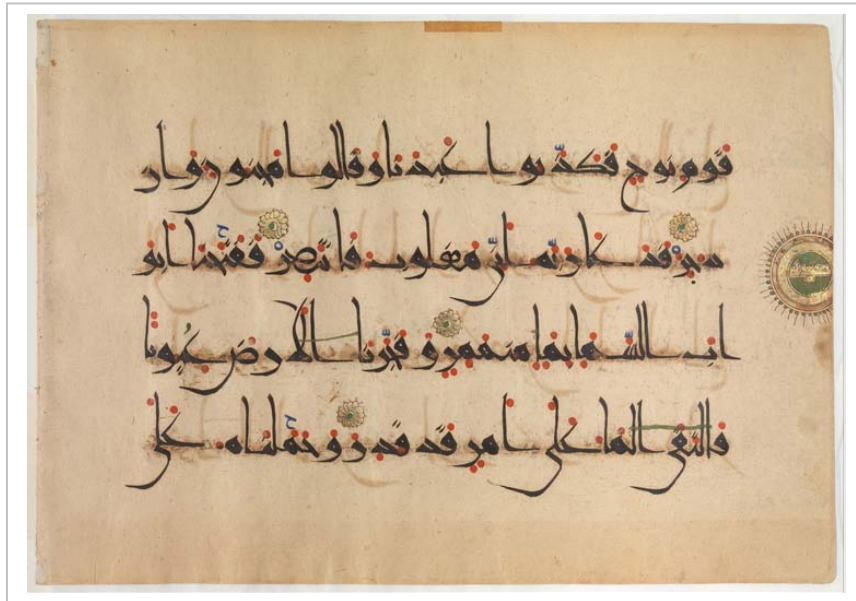 قوم نوح فكذبوا عبدنا و قالوا مجنون و از
دجر فدعا ربه اني مغلوب فانتصر ففتحنا ابو
اب السما بما منهمر و فجرنا الارض عيونا
فالتقى الما على امر قد قدر و حملناه على